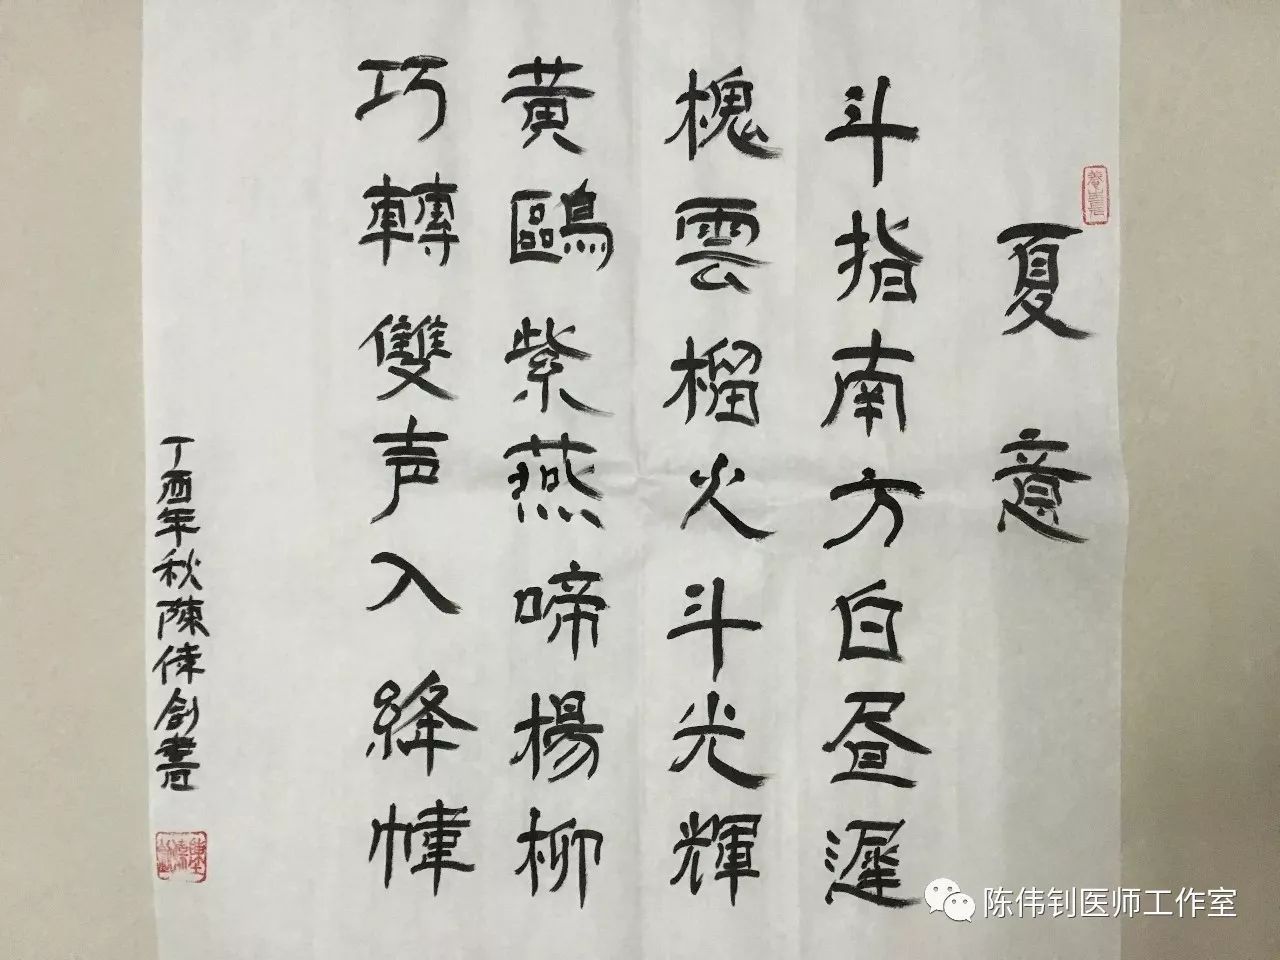 夏意
斗指南方白昼遲
槐雲榴火斗光輝
黄鷗紫燕啼楊柳
巧轉雙声入絳幃
丁酉年秋陳偉釗書
陈伟钊医师工作室